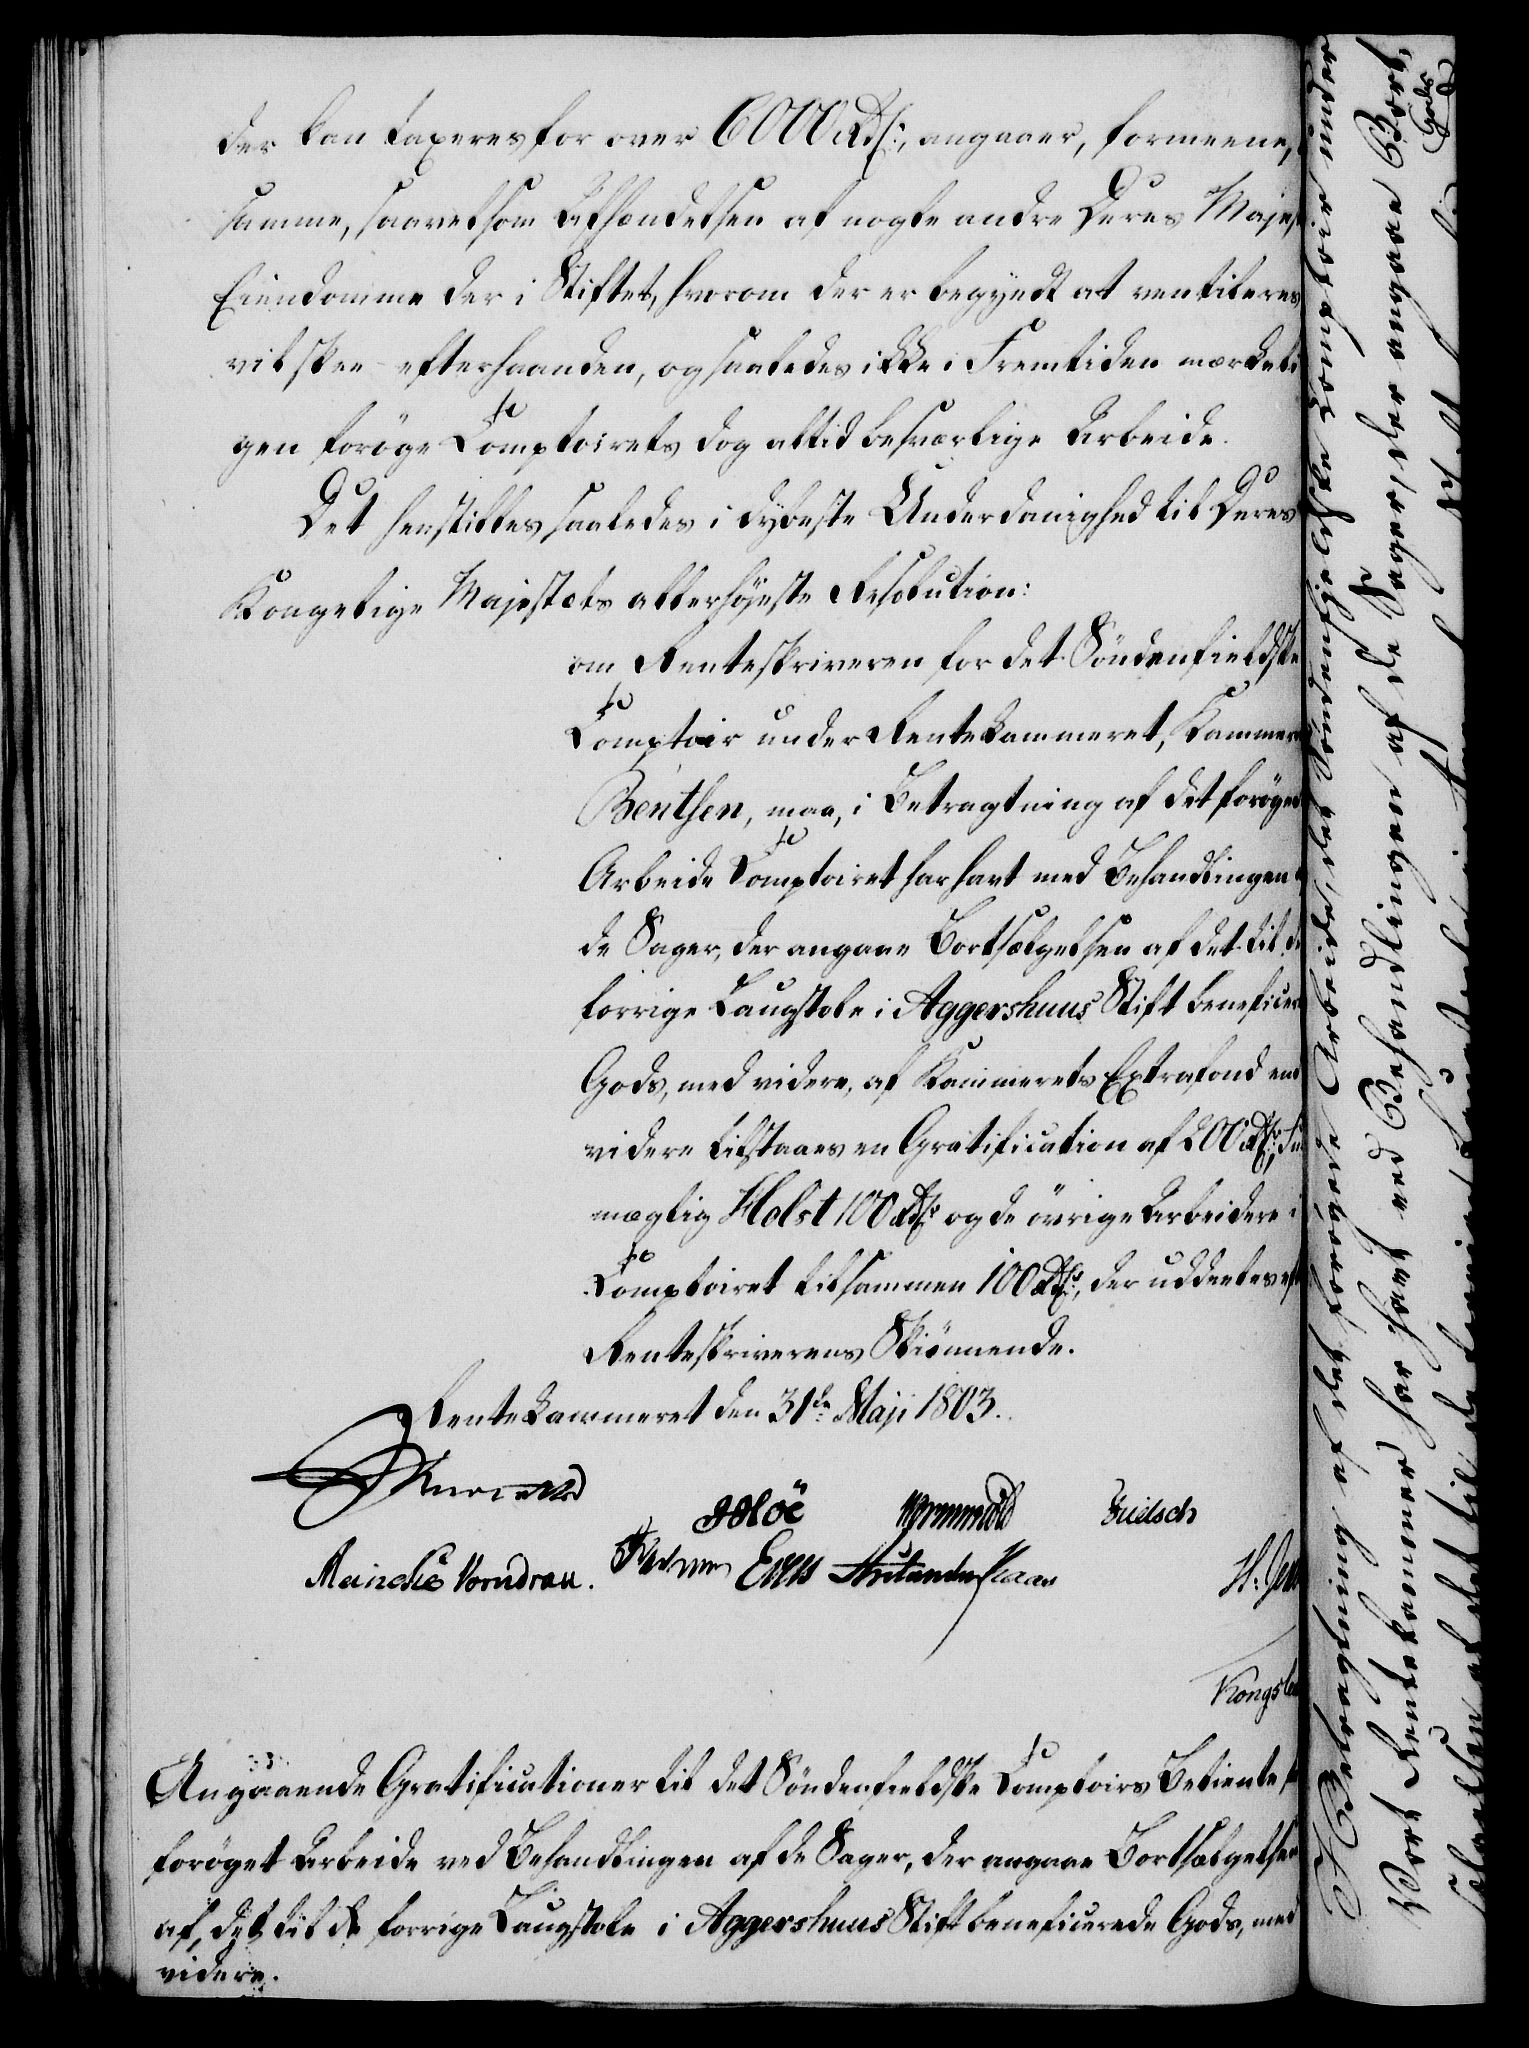 der kan taxeres for over 6000 Rd:, angaaer, formeene,
samme, saavelsom Afhændelsen af nogle andre Deres Majes
Eiendomme der i Stiftet, hvorom der er begyndt at ventileres
vil skee efterhaanden, og saaledes ikke i Fremtiden mærkeli
gen forøge Comptoirets dog altid besværlige Arbeide.
Det henstilles saaledes i dybeste Underdanighed til Deres
Kongelige Majestæts allerhøjeste Resolution:
om Renteskriveren for det Söndenfieldske
Comptoir under Rentekammeret, Kammer
Benthen, maa, i Betragtning af det forøge
Arbeide Comptoiret har havt med Behandlingen
de Sager, der angaae Bortsælgelsen af det til de
forrige Laugstole i Aggershuus Stift beneficer
Gods, med videre, af Kammerets Extrafond end
videre tilstaaes en Gratification af 200 Rd:, Fu
mægtig Holst 100 Rd: og de övrige Arbeidere i
Comptoiret tilsammen 100 Rd:, der uddeeles eft
Renteskriverens Skiönnende.
Rentekammeret den 31de Maji 1803.
Hoë Wormskiold Fridsch
Meincke Vorndran. Evers Kaas H: Jen
Kongsle
Angaaende Gratificationer til det Söndenfieldske Comptoirs Betiente f
forøget Arbeide ved Behandlingen af de Sager, der angaae Bortsælgelsen
af det til de forrige Laugstole i Aggershuus Stift beneficerede Gods, med
videre.
I Betragtning af det forøgede Arbeide, det Söndenfieldske Comptoir under
Vort Rentekammer har havt ved Behandlingen af de Sager, der angaae Bort-